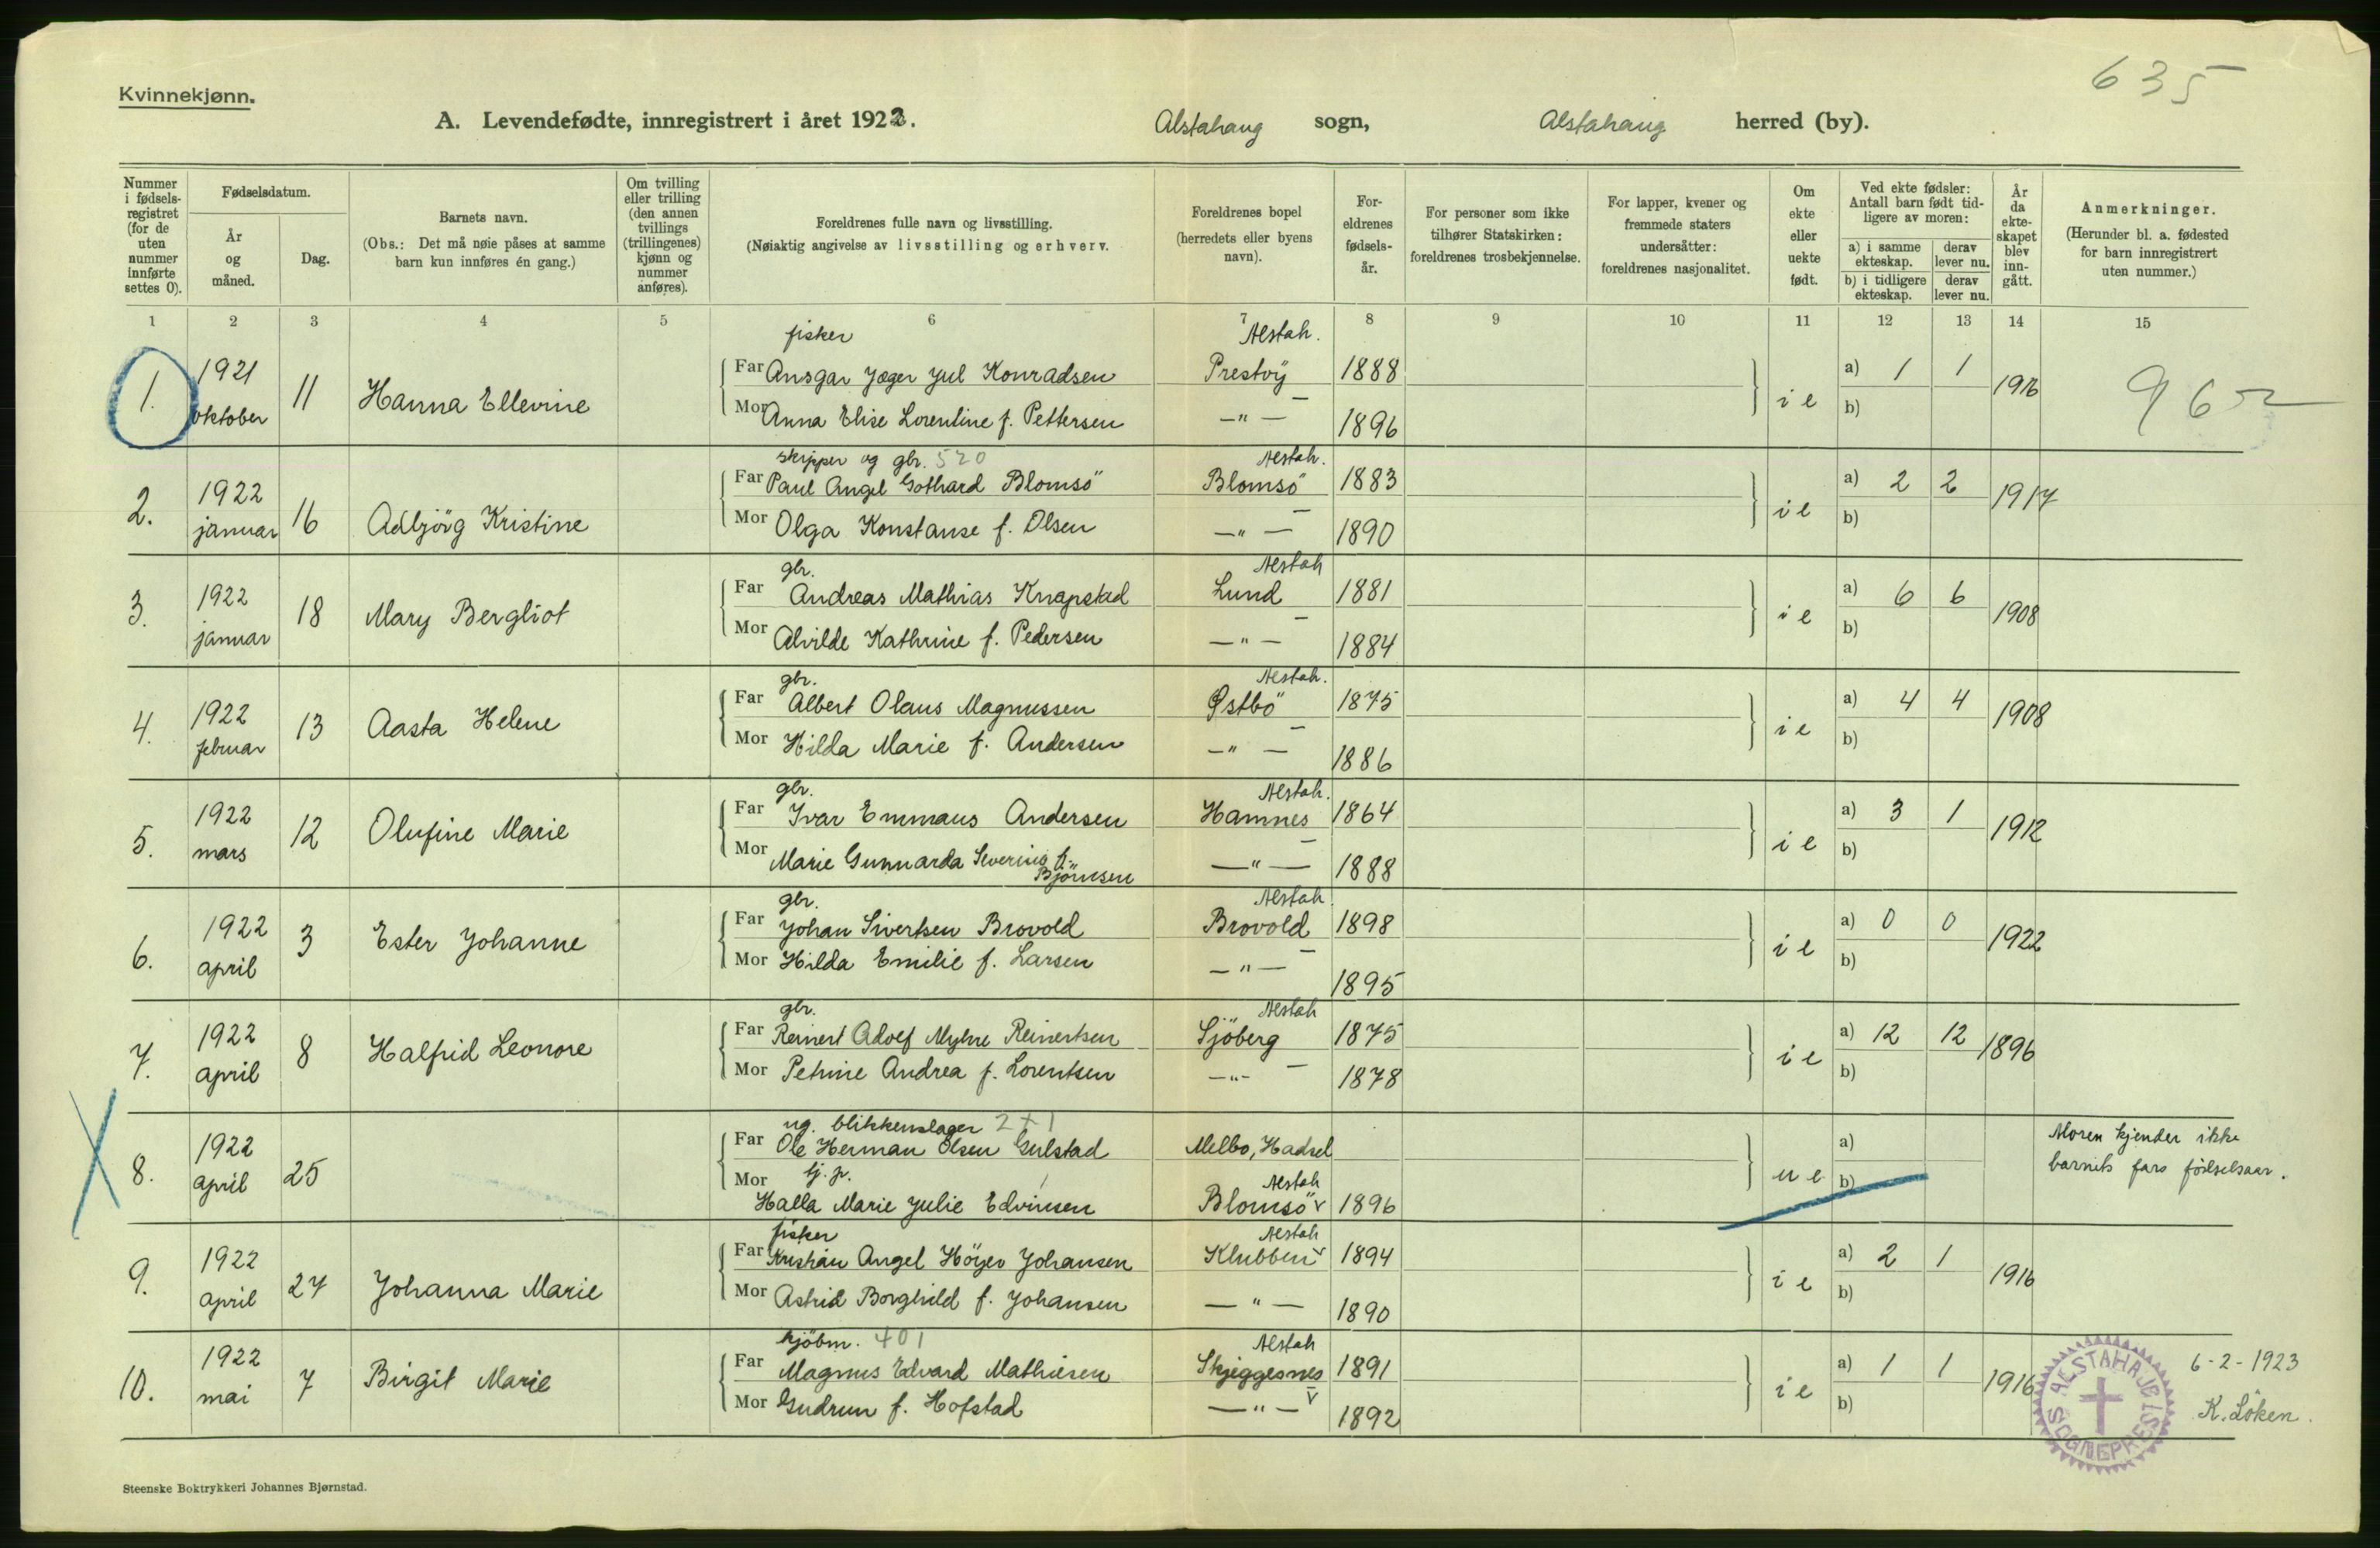 635
Kvinnekjønn.
A. Levendefødte, innregistrert i året 1922. Alstahaug sogn, Alstahaug herred (by).
Nummer i fødsels-registret (for de uten nummer innførte settes 0).
Fødselsdatum.
År og måned.
Dag.
Barnets navn.
(Obs.: Det må nøie påses at samme barn kun innføres én gang.)
Om tvilling eller trilling (den annen tvillings (trillingenes) kjønn og nummer anføres).
Foreldrenes fulle navn og livsstilling.
(Nøiaktig angivelse av livsstilling og erhverv.
Foreldrenes bopel (herredets eller byens navn).
For-eldrenes fødsels-år.
For personer som ikke tilhører Statskirken: foreldrenes trosbekjennelse.
For lapper, kvener og fremmede staters undersåtter: foreldrenes nasjonalitet.
Om ekte eller uekte født.
Ved ekte fødsler: Antall barn født tid-ligere av moren:
a) i samme ekteskap. derav lever nu.
b) i tidligere ekteskap. derav lever nu.
År da ekte-skapet blev inn-gått.
Anmerkninger.
(Herunder bl. a. fødested for barn innregistrert uten nummer.)
1 2 3 4 5 6 7 8 9 10 11 12 13 14 15
fisker Alstah.
1. 1921 oktober 11 Hanna Ellevine
Far Ansgar Jæger Jul Konradsen Prestöy 1888
Mor Anna Elise Lorentine f. Pettersen —"— 1896
ie a) 1 1 b) 1916 962
skipper og gbr. 520 Alstah.
2. 1922 januar 16 Adbjörg Kristine
Far Paul Angel Gothard Blomsö Blomsö 1883
Mor Olga Konstanse f. Olsen —"— 1890
ie a) 2 2 b) 1917
gbr. Alstah
3. 1922 januar 18 Mary Bergliot
Far Andreas Mathias Knapstad Lund 1881
Mor Alvilde Kathrine f. Pedersen —"— 1884
ie a) 6 6 b) 1908
gbr. Alstah.
4. 1922 februar 13 Aasta Helene
Far Albert Olaus Magnussen Østbö 1875
Mor Hilda Marie f. Andersen —"— 1886
ie a) 4 4 b) 1908
gbr. Alstah.
5. 1922 mars 12 Olufine Marie
Far Ivar Emmaus Andersen Hamnes 1864
Mor Marie Gunnarda Severine f. Björnsen —"— 1888
ie a) 3 1 b) 1912
gbr. Alstah.
6. 1922 april 3 Ester Johanne
Far Johan Sivertsen Brovold Brovold 1898
Mor Hilda Emilie f. Larsen —"— 1895
ie a) 0 0 b) 1922
gbr. Alstah
7. 1922 april 8 Halfrid Leonore
Far Reinert Adolf Myhre Reinertsen Sjöberg 1875
Mor Petrine Andrea f. Lorentsen —"— 1878
ie a) 12 12 b) 1896
ug. blikkenslager 2+1
8. 1922 april 25
Far Ole Herman Olsen Gulstad Melbo, Hadsel
Mor tj. p. Alstah
Halla Marie Julie Edvinsen Blomsö v 1896
ue a) b)
Moren kjender ikke
barnets fars födselsaar.
fisker Alstah
9. 1922 april 27 Johanna Marie
Far Kristian Angel Höyer Johansen Klubben v 1894
Mor Astrid Borghild f. Johansen —"— 1890
ie a) 2 1 b) 1916
kjöbm. 401 Alstah
10. 1922 mai 7 Birgit Marie
Far Magnus Edvard Mathiesen Skjeggesnes 1891
Mor Gudrun f. Hofstad —"— v 1892
ie a) 1 1 b) 1916
ALSTAHAUG SOGNEPREST
6-2-1923
K. Löken.
Steenske Boktrykkeri Johannes Bjørnstad.